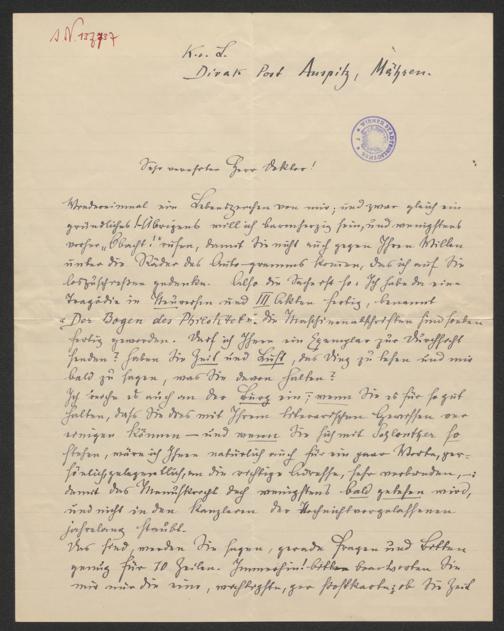 K. u. L.
Divak Post Auspitz, Mähren.
WIENER STADTBIBLIOTHEK
Sehr verehrter Herr Doktor!
Wiedereinmal ein Lebenszeichen von mir; und zwar gleich ein
gründliches! Übrigens will ich barmherzig sein, und wenigstens
vorher „Obacht!" rufen, damit Sie nicht auch gegen Ihren Willen
unter die Räder des Auto-gramms kommen, das ich auf Sie
loszuschießen gedenke. Also die Sache ist so: Ich habe eine
Tragödie in Neuversen und III Akten fertig, benannt
„Der Bogen des Philoktet". Die Maschinenabschriften sind soeben
fertig geworden. Darf ich Ihnen ein Exemplar zur Durchsicht
senden? Haben Sie Zeit und Lust, das Ding zu lesen und mir
bald zu sagen, was Sie davon halten?
Ich reiche es auch an der Burg ein; wenn Sie es für so gut
halten, daß Sie dies mit Ihrem literarischen Gewissen ver
einigen können – und wenn Sie sich mit so
stehen, wäre ich Ihnen natürlich auch für ein paar Worte, per-
sönlich gelegentlich, an die richtige Adresse, sehr verbunden, –:
damit das Manuskript doch wenigstens bald gelesen wird,
und nicht in den Kanzleien der
jahrelang staubt.
Das sind, werden Sie sagen, gerade Fragen und Bitten
genug für 10 Zeilen. Immerhin! beantworten Sie
mir nur die eine, wichtigste, per Postkarte, ob Sie Zeit